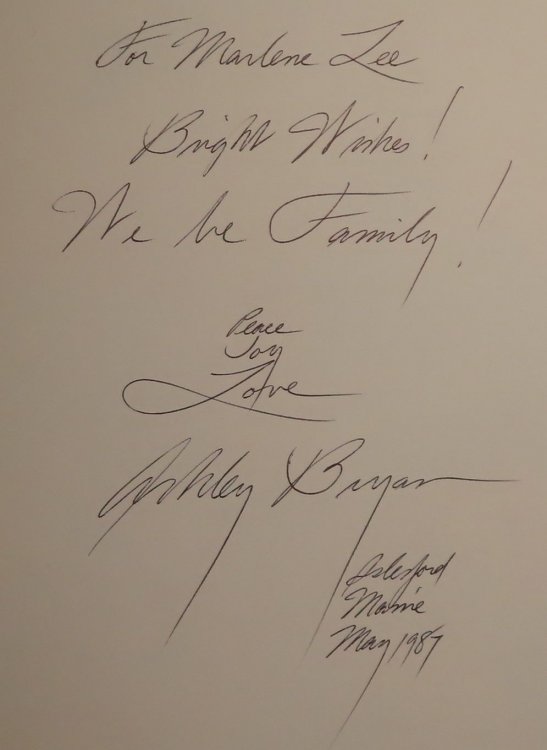 For Marlene Lee
Bright Wishes!
We be Family!
Peace
Joy
Love
Ashley Bryan
Islesford
Maine
May 1987